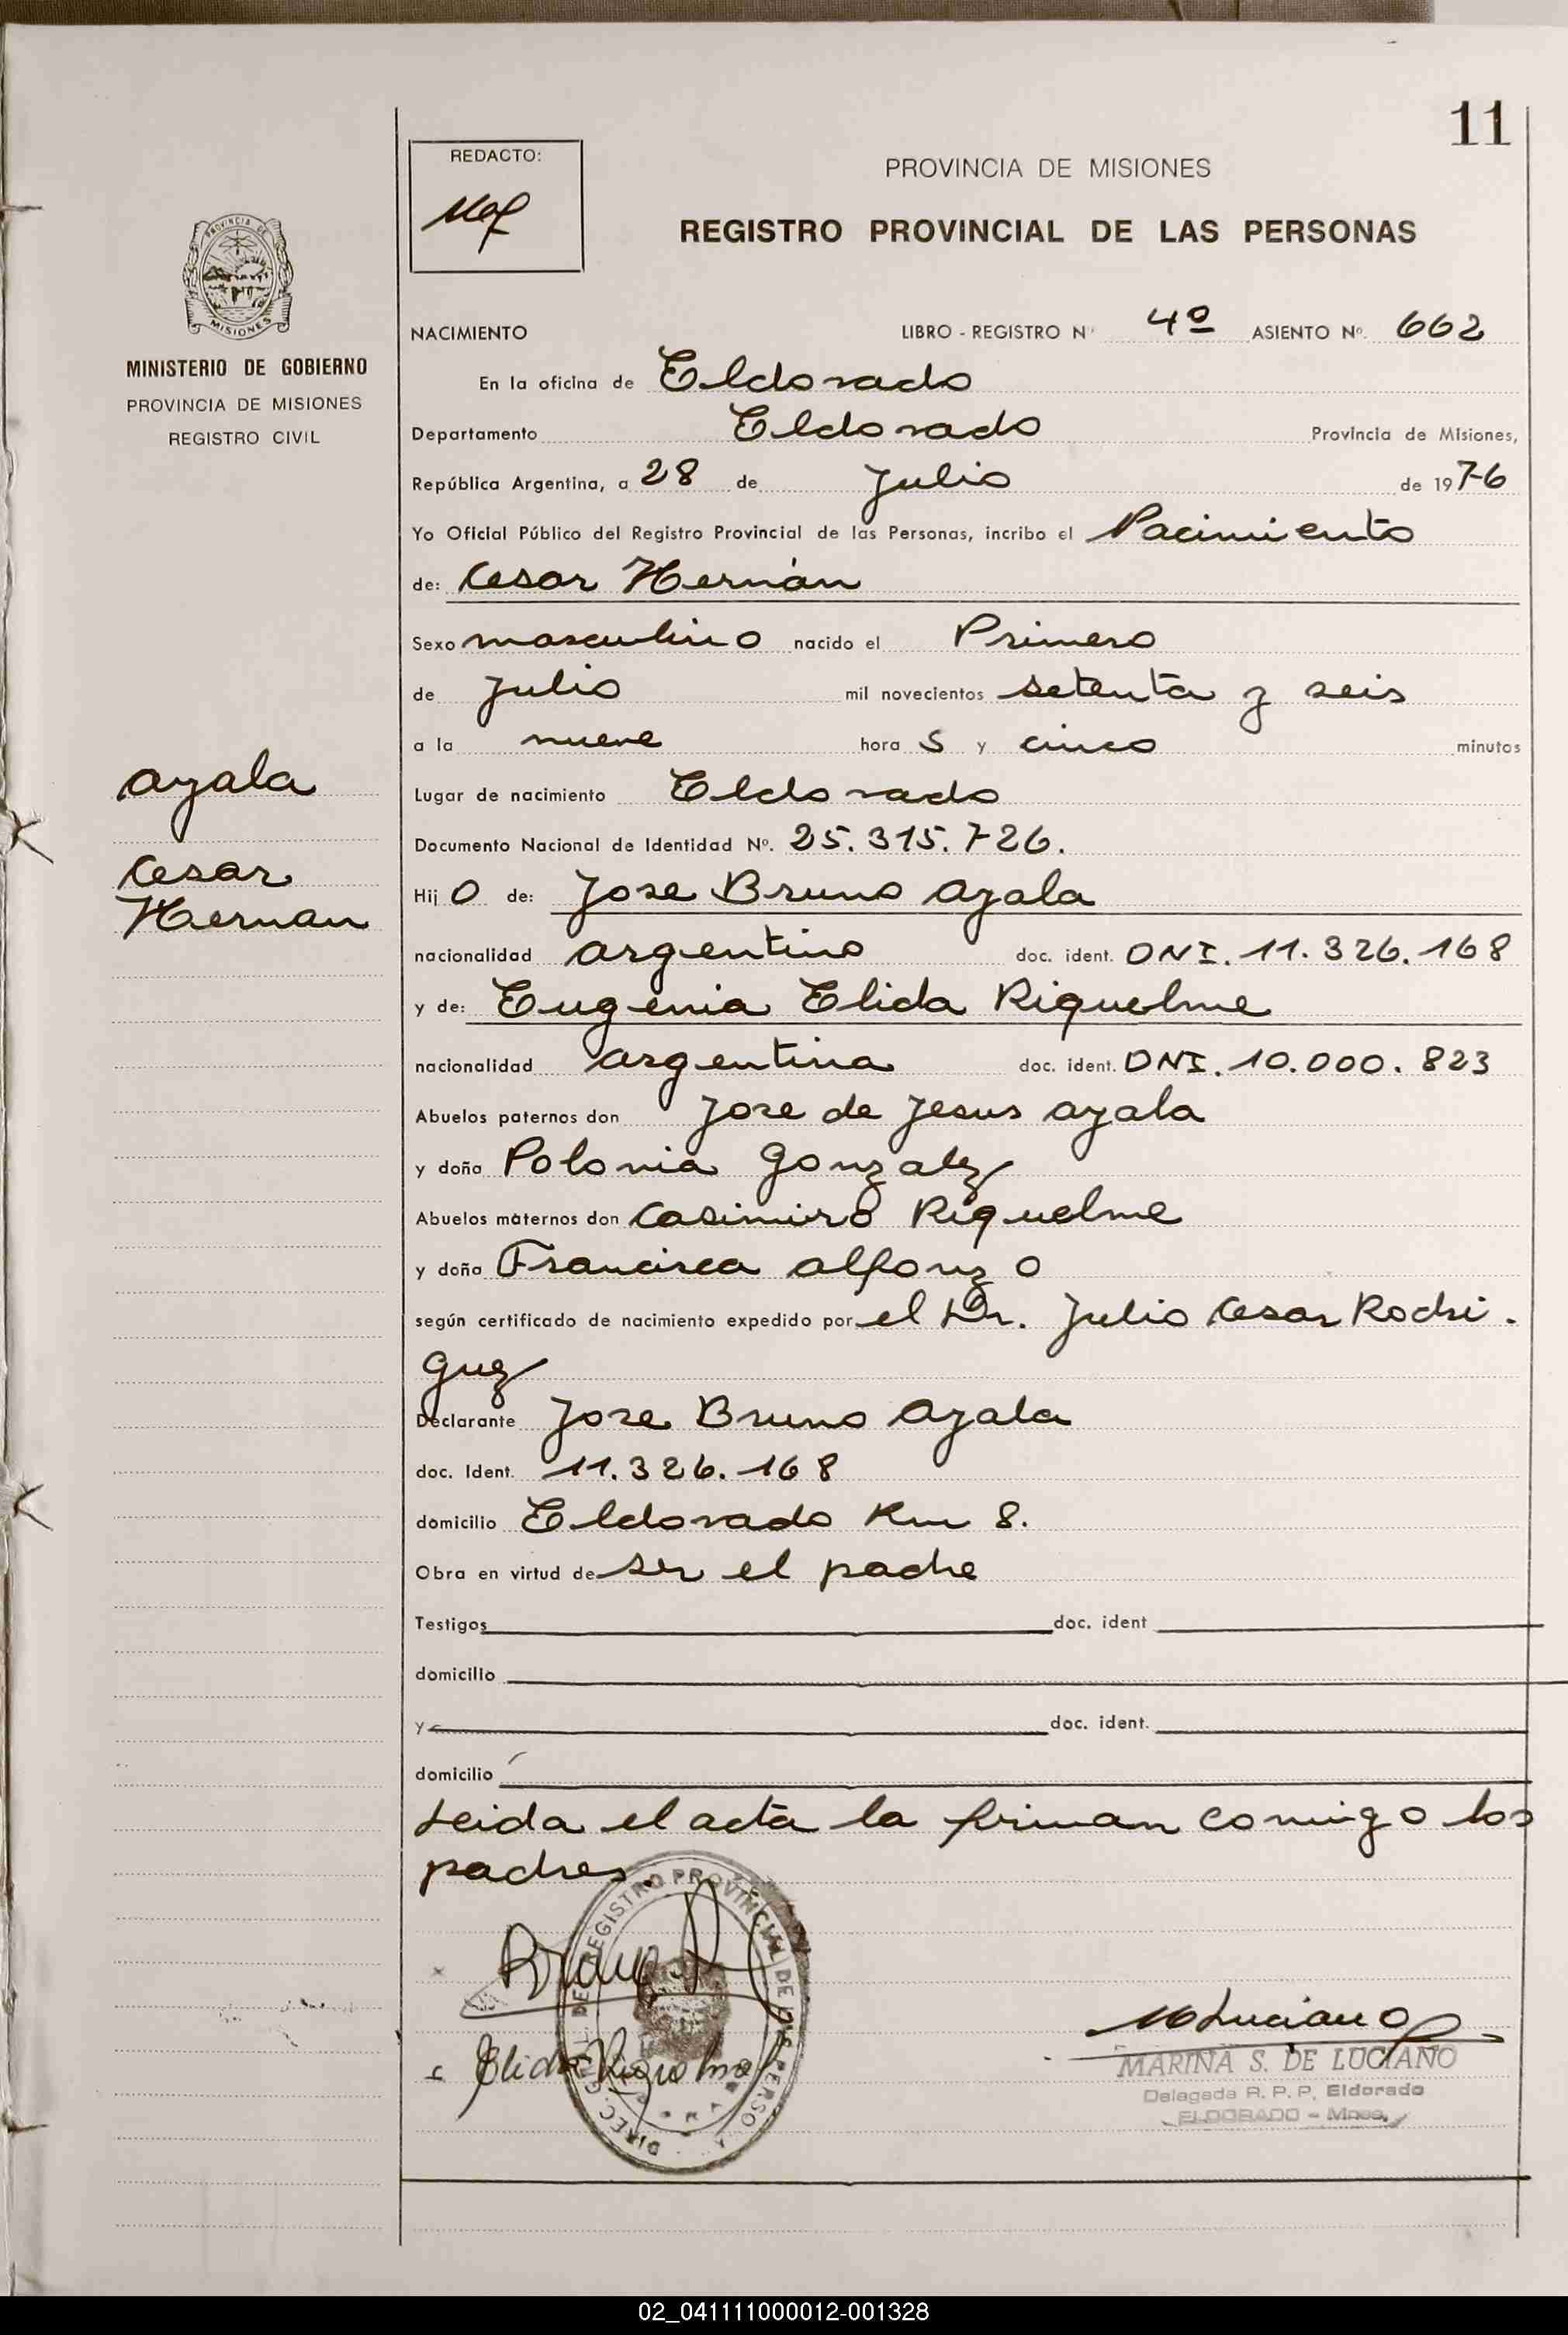 11
REDACTO:
PROVINCIA DE MISIONES
REGISTRO PROVINCIAL DE LAS PERSONAS
PROVINCIA DE
MISIONES
MINISTERIO DE GOBIERNO
PROVINCIA DE MISIONES
REGISTRO CIVIL
NACIMIENTO LIBRO - REGISTRO Nº 4º ASIENTO Nº. 662
En la oficina de Eldorado
Departamento Eldorado Provincia de Misiones,
República Argentina, a 28 de Julio de 1976
Yo Oficial Público del Registro Provincial de las Personas, incribo el Nacimiento
de: Cesar Hernán
Sexo masculino nacido el Primero
de Julio mil novecientos setenta y seis
a la nueve hora s y cinco minutos
Lugar de nacimiento Eldorado
Documento Nacional de Identidad Nº. 25.315.726.
Hij o de: Jose Bruno Ayala
nacionalidad argentino doc. ident. DNI. 11.326.168
y de: Eugenia Elida Riquelme
nacionalidad argentina doc. ident. DNI. 10.000.823
Abuelos paternos don Jose de Jesus Ayala
y doña Polonia Gonzalez
Abuelos maternos don Casimiro Riquelme
y doña Francisca Alfonzo
según certificado de nacimiento expedido por el Dr. Julio Cesar Rodri-
guez
Declarante Jose Bruno Ayala
doc. Ident. 11.326.168
domicilio Eldorado Km 8.
Obra en virtud de ser el padre
Testigos doc. ident
domicilio
y doc. ident.
domicilio
Leida el acta la firman comigo los
padres.
Ayala
Cesar
Hernan
DIREC. GRAL. DEL REGISTRO PROVINCIAL DE LAS PERSO
Elida Riquelme
MLuciano
MARINA S. DE LUCIANO
Delegada R. P. P. Eldorado
ELDORADO - Mnes.
02_041111000012-001328